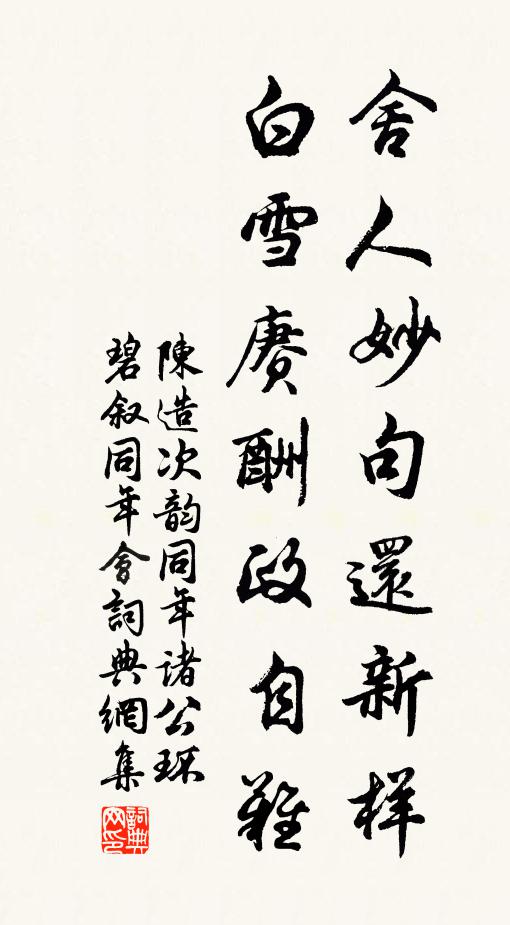 舍人妙句還新样
白雪赓酬政自難
陳造次韵同年诸公环
碧叙同年會詞典網集
詞典网印